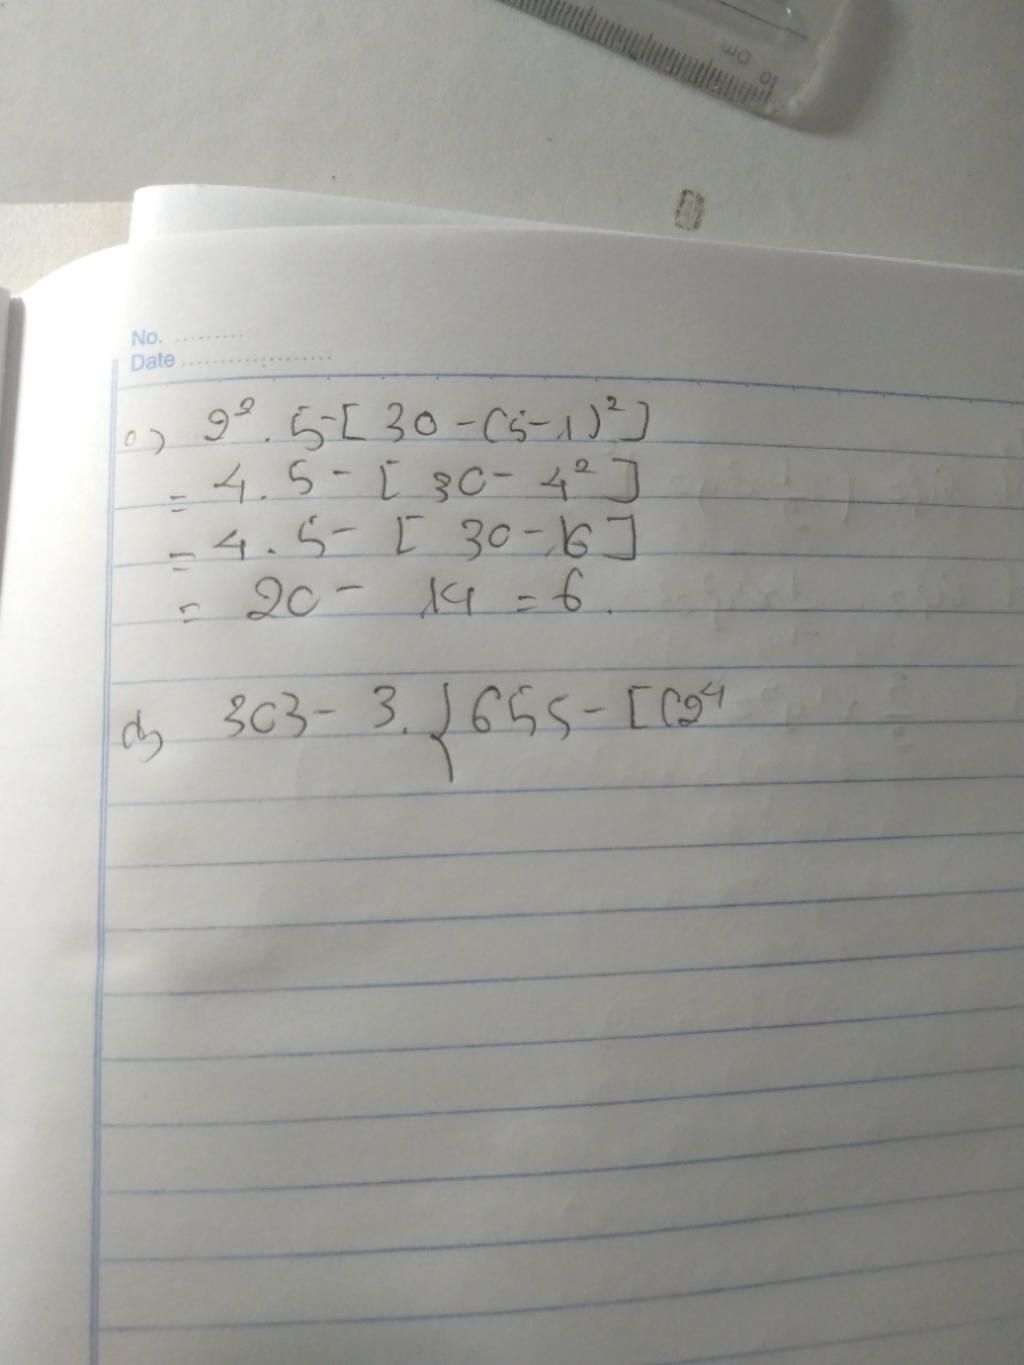 10 Dm
No. ..........
Date ....................
c) 2². 5-[ 30 -(5-1)²]
= 4. 5 - [ 30 - 4²]
= 4. 5 - [ 30 - 16]
= 20 - 14 = 6.
d) 303 - 3. { 655 - [(2⁴